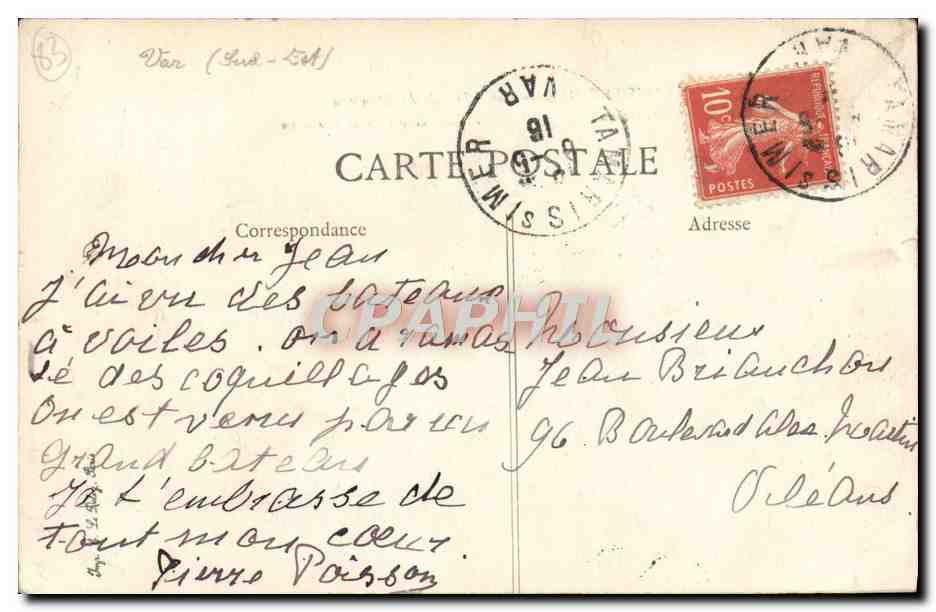 83
Var (Sud-Est)
TAMARIS S/MER
16
VAR
TAMARIS S/MER
VAR
REPUBLIQUE FRANÇAISE
10c
POSTES
CARTE POSTALE
Correspondance
Adresse
Mon cher Jean
J'ai vu des bateaux
à voiles. on a ramas
sé des coquillages
on est venu par un
grand bateau
Je t'embrasse de
tout mon cœur
Pierre Poisson
CPAPHIL
Monsieur
Jean Brianchon
96 Boulevard Alex. Martin
Orléans